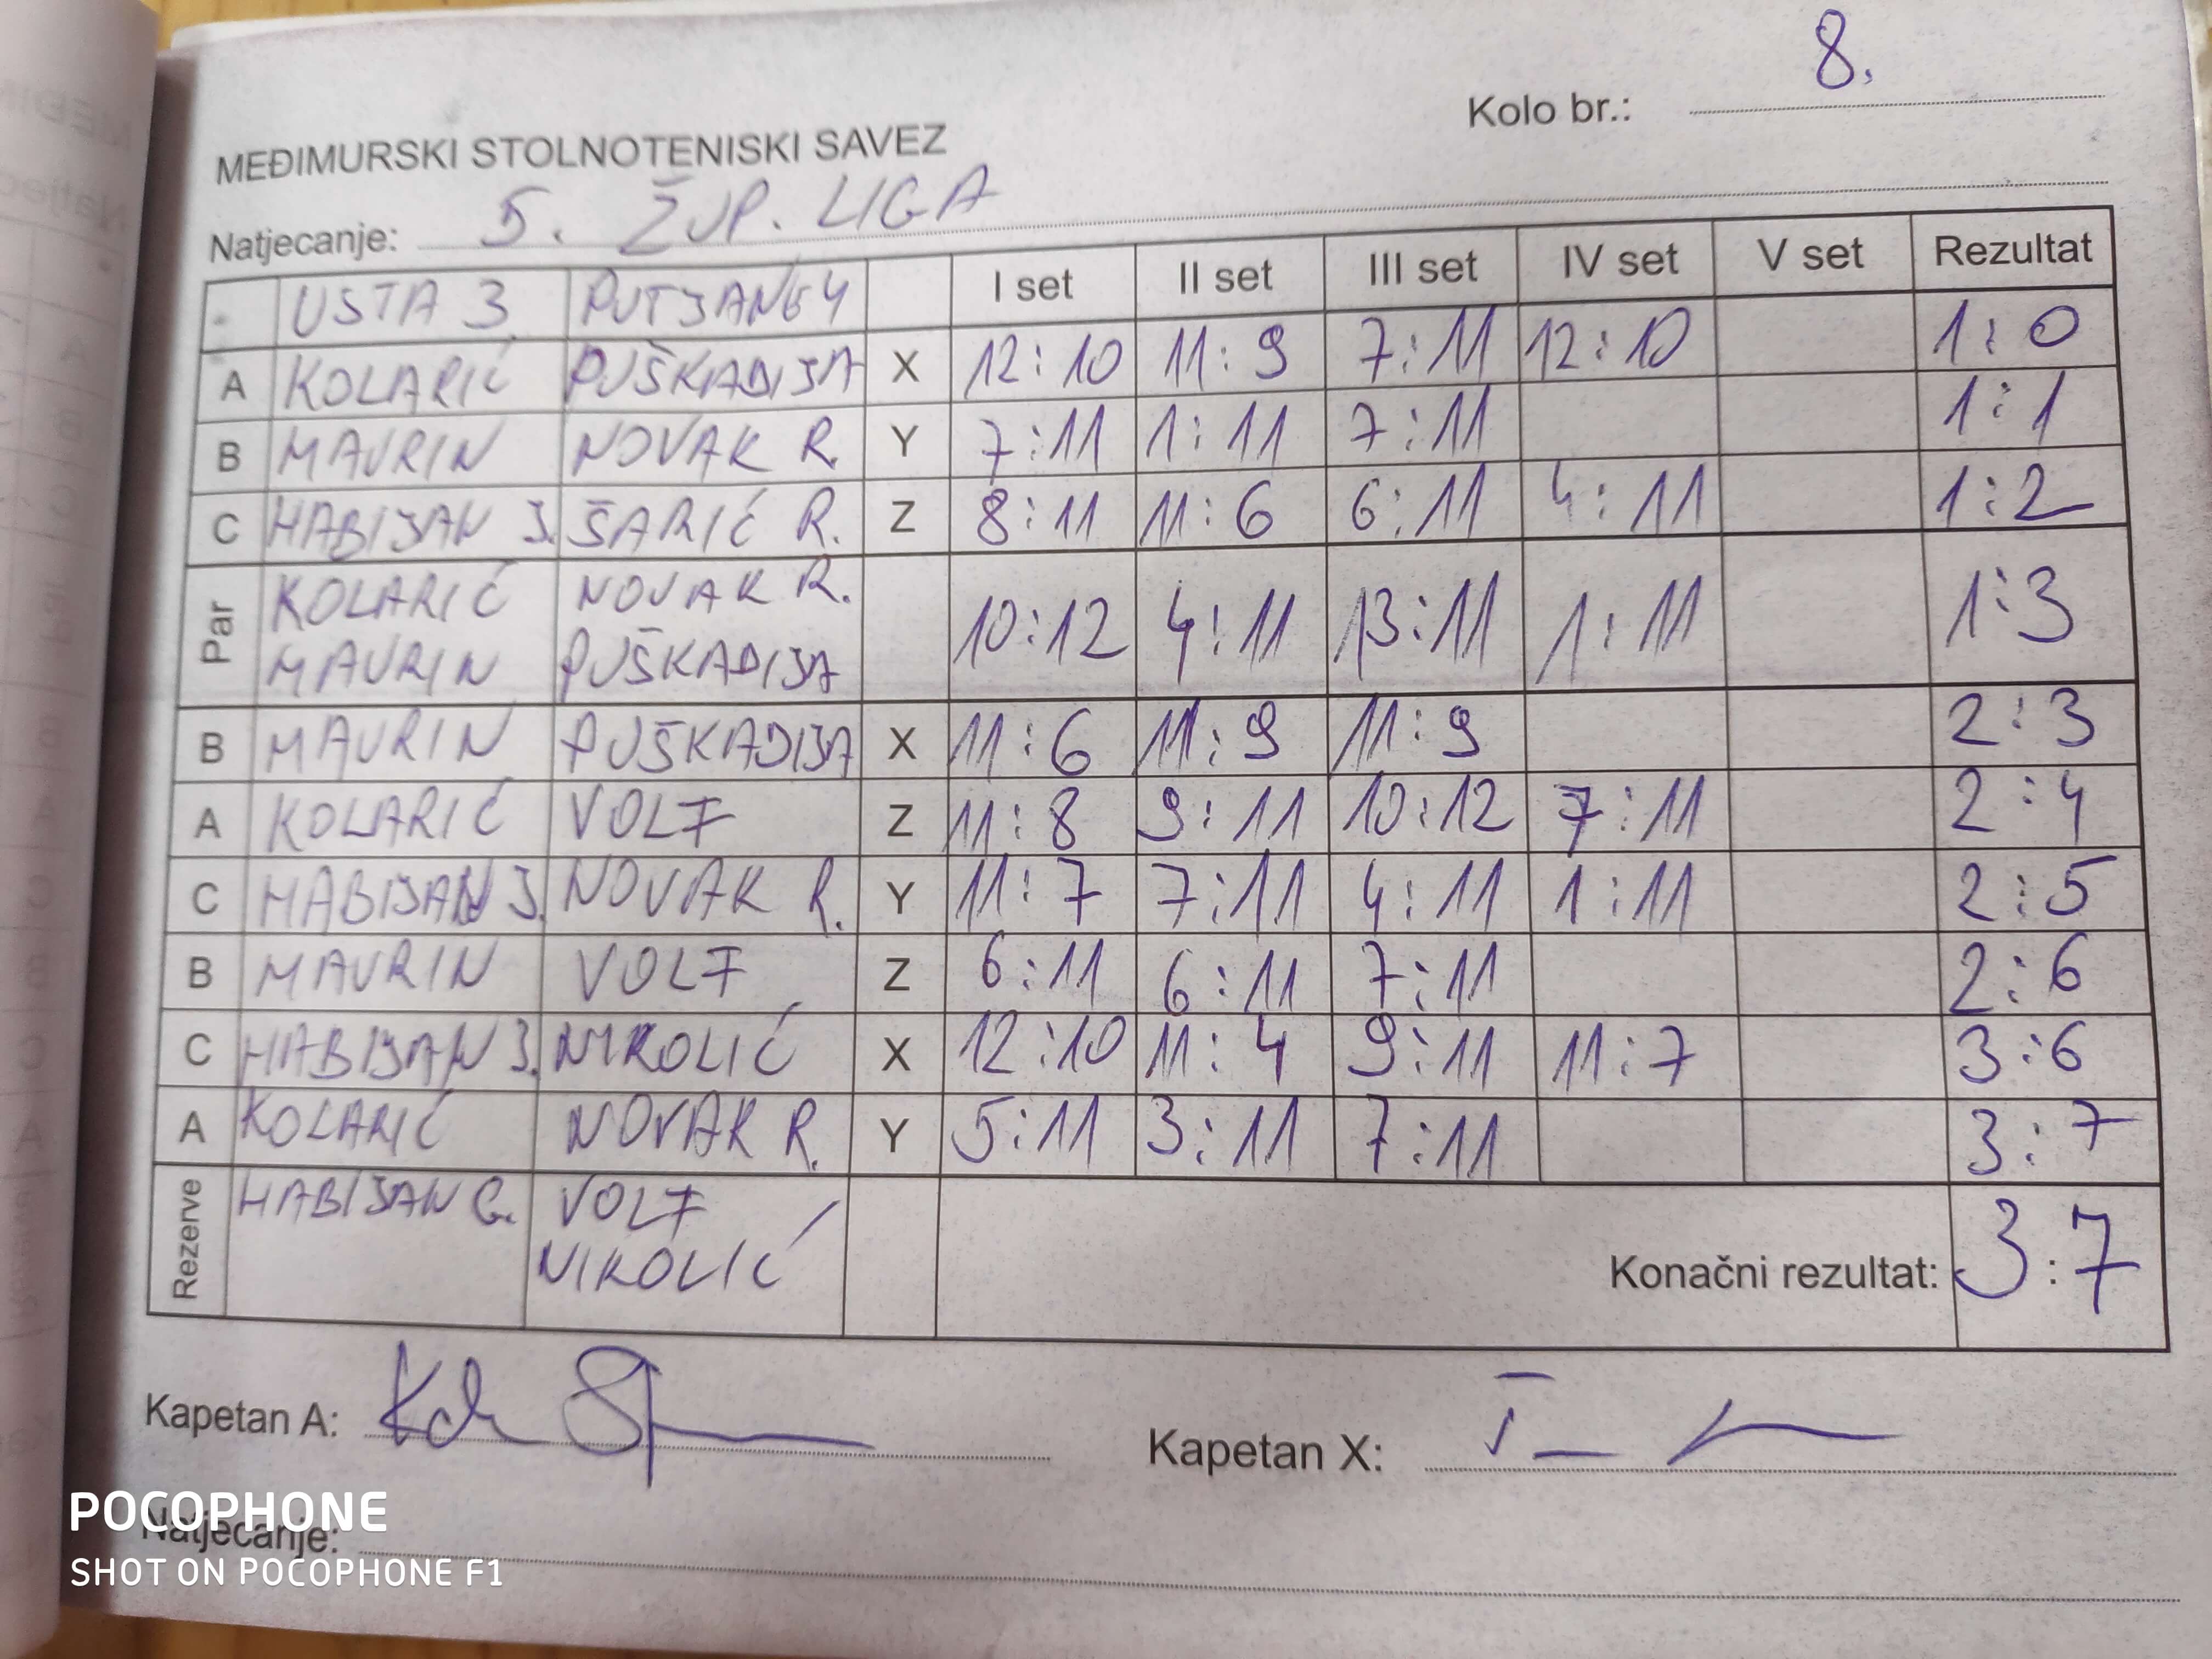 Kolo br.: 8.
MEĐIMURSKI STOLNOTENISKI SAVEZ
Natjecanje: 5. ŽUP. LIGA
USTA 3 PUTJANE 4 I set II set III set IV set V set Rezultat
A KOLARIĆ PUŠKADIJA X 12:10 11:9 7:11 12:10 1:0
B MAVRIN NOVAK R. Y 7:11 1:11 7:11 1:1
C HABIJAN J. ŠARIĆ R. Z 8:11 11:6 6:11 4:11 1:2
Par KOLARIĆ NOVAK R. 10:12 4:11 13:11 1:11 1:3
MAVRIN PUŠKADIJA
B MAVRIN PUŠKADIJA X 11:6 11:9 11:9 2:3
A KOLARIĆ VOLF Z 11:8 9:11 10:12 7:11 2:4
C HABIJAN J. NOVAK R. Y 11:7 7:11 4:11 1:11 2:5
B MAVRIN VOLF Z 6:11 6:11 7:11 2:6
C HABIJAN J. NIKOLIĆ X 12:10 11:4 9:11 11:7 3:6
A KOLARIĆ NOVAK R. Y 5:11 3:11 7:11 3:7
Rezerve HABIJAN G. VOLF
NIKOLIĆ
Konačni rezultat: 3:7
Kapetan A:
Kapetan X:
Natjecanje:
POCOPHONE
SHOT ON POCOPHONE F1